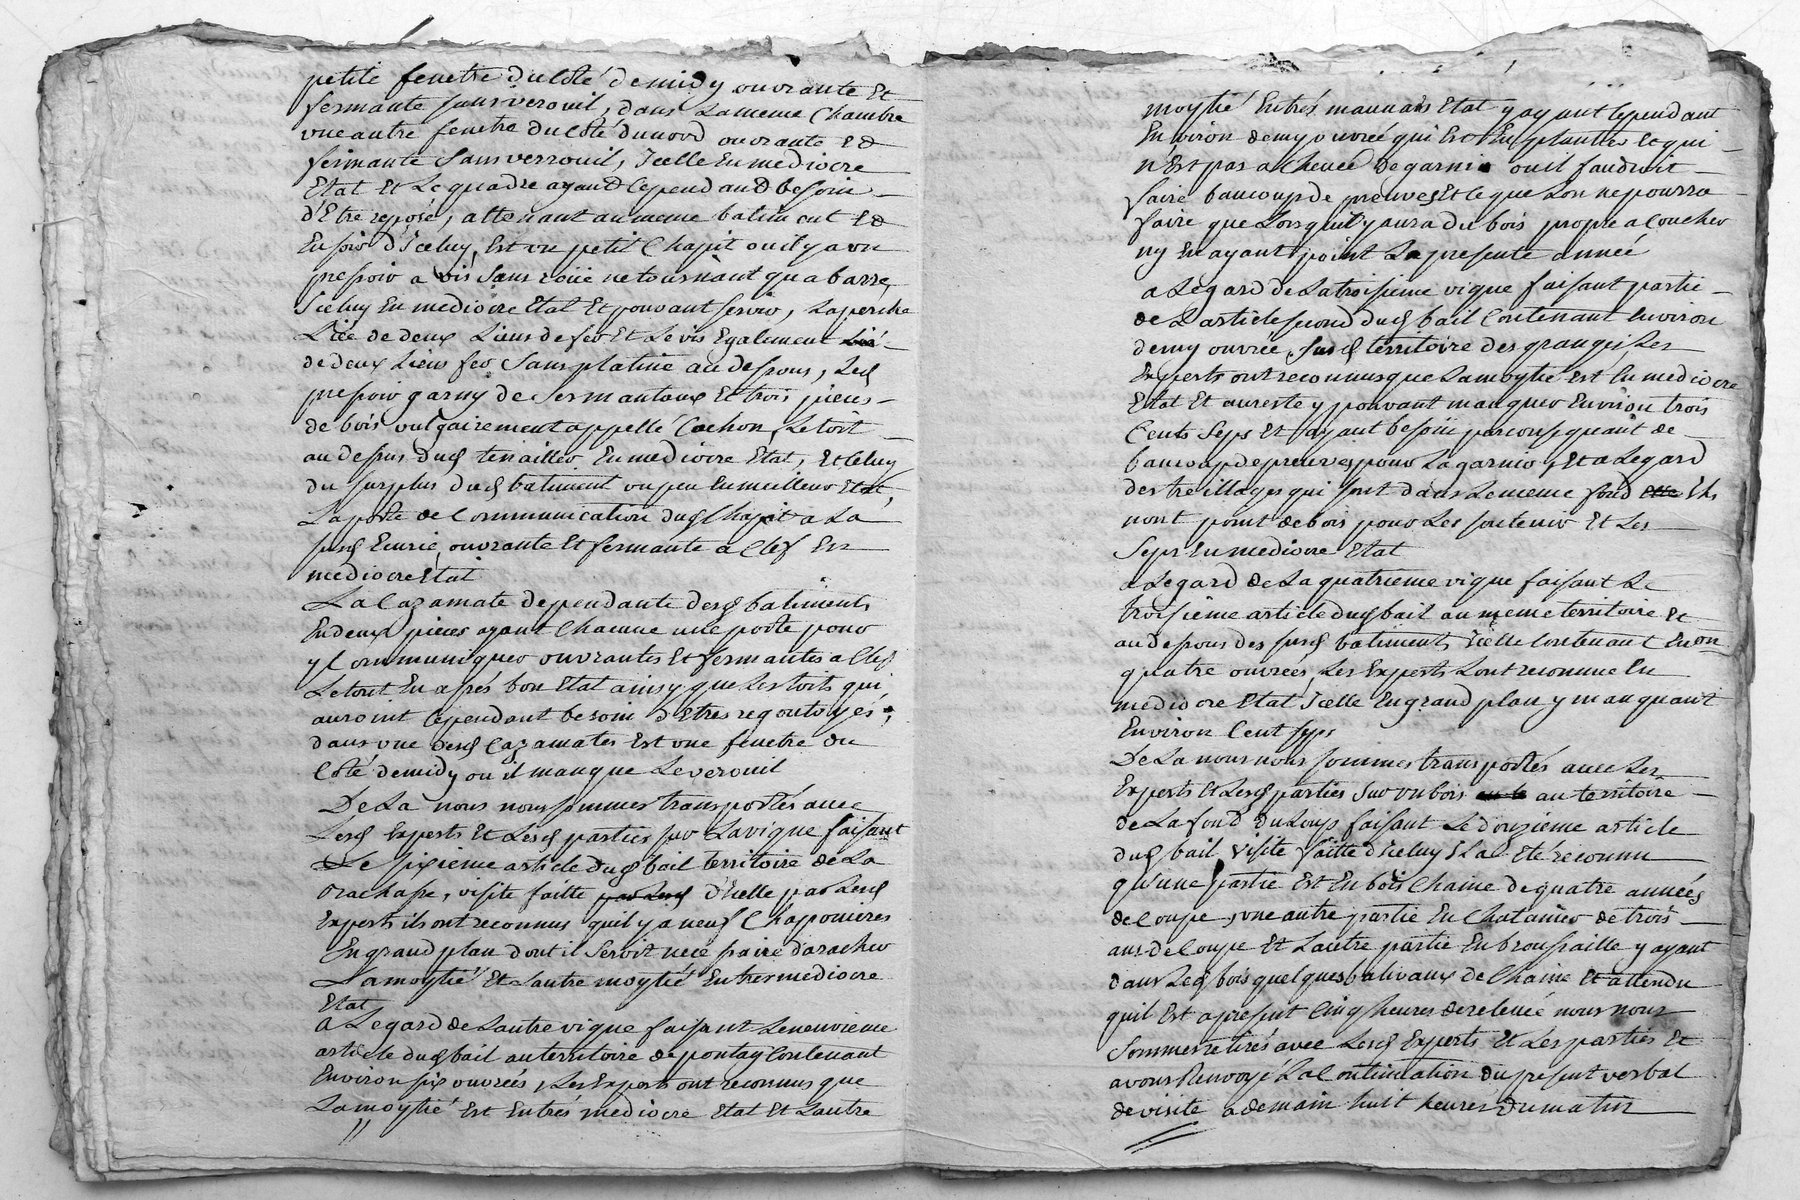 petite fenetre du coté de midy ouvrante Et
fermante sans verouil, dans La meme Chambre
vne autre fenetre du Coté du nord ouvrante Et
fermante Sans verrouil, Icelle En mediocre
Etat Et Le quadre ayant Cependant besoin
d'Etre reposé, attenant au meme batiment Et
En soir d'Iceluy, Est vn petit Chapit ou il y a vn
pressoir a vis Sans roüe ne tournant qu a barre,
Iceluy En mediocre Etat Et pouvant servir, La perche
Liée de deux Liens de fer Et Le vis Egalement
de deux Liens fer Sans platine au dessous, Led
pressoir garny de Ses mantaux Et trois pieces
de bois vulgairement appellé Cochon, Le toit
au dessus dud tenailler En mediocre Etat, Et Celuy
du surplus dud batiment vn peu En meilleur Etat,
La porte de Communication dud Chapit a La
susd Ecurie ouvrante Et fermante a Clef En
mediocre Etat
La Cazamate dependante desd batiments
En deux pieces ayant Chacune une porte pour
y Communiquer ouvrantes Et fermantes a Clef
Le tout En a prés bon Etat ainsy que Les toits qui
auroint Cependant besoin d'Etres regoutoyés,
dans vne desd Cazamates Est vne fenetre du
Coté de midy ou il manque Le verouil
De La nous nous sommes transportés avec
Lesd Experts Et Lesd parties sur La vigne faisant
Le sixieme article dud bail territoire de La
visite faitte par Lesd d'Icelle par Lesd
Experts ils ont reconnus qu'il y a neuf Chaponieres
En grand plan dont il Seroit necessaire d'aracher
La moytié Et Lautre moytié En tres mediocre
Etat
a Legard de Lautre vigne faisant Le neuvieme
article dud bail au territoire de pontay Contenant
Environ six ouvrées, Les Experts ont reconnus que
La moytié Est En trés mediocre Etat Et Lautre
moytié En trés mauvais Etat y ayant Cependant
Environ demy ouvrée qui Est En plantées Ce qui
n'Est pas achevée De garnir ou il faudroit
faire baucoup de preuves Et Ce que Lon ne pourra
faire que Lorsquil y aura du bois propre a Coucher
ny En ayant point La presente année
a Legard de La troisieme vigne faisant partie
de L article second dud bail Contenant Environ
demy ouvrée, susd territoire des granges, Les
Experts ont reconnus que La moytié Est En mediocre
Etat Et au reste y pouvant manquer Environ trois
Cents Seps Et ayant besoin par consequant de
baucoup de preuves pour La garnir, Et a Legard
des treillages qui sont dans Le meme fond Ils
nont point de bois pour Les soutenir Et Les
Seps En mediocre Etat
a Legard de La quatrieme vigne faisant Le
troisiême article dud bail au meme territoire Et
au dessous des susd batiments, Icelle Contenant Environ
quatre ouvrées, Les Experts Lont reconnue En
mediocre Etat Icelle En grand plan y manquant
Environ Cent seps
De La nous nous sommes transportés avec Les
Experts Et Lesd parties sur vn bois au territoire
de La fond du Loup faisant Le douzieme article
dud bail visite faitte d'Iceluy Il a Eté reconnu
qu'une partie Est En bois Chaine de quatre années
de Coupe, vne autre partie En Chatanier de trois
ans de Coupe Et Lautre partie En broussaille y ayant
dans Led bois quelques balivaux de Chaine Et attendu
quil Est a present Cinq heures de relevée nous nous
Sommes retirés avec Lesd Experts Et Les parties Et
avons Renvoyé La Continuation du present verbal
de visite a demain huit heures du matin